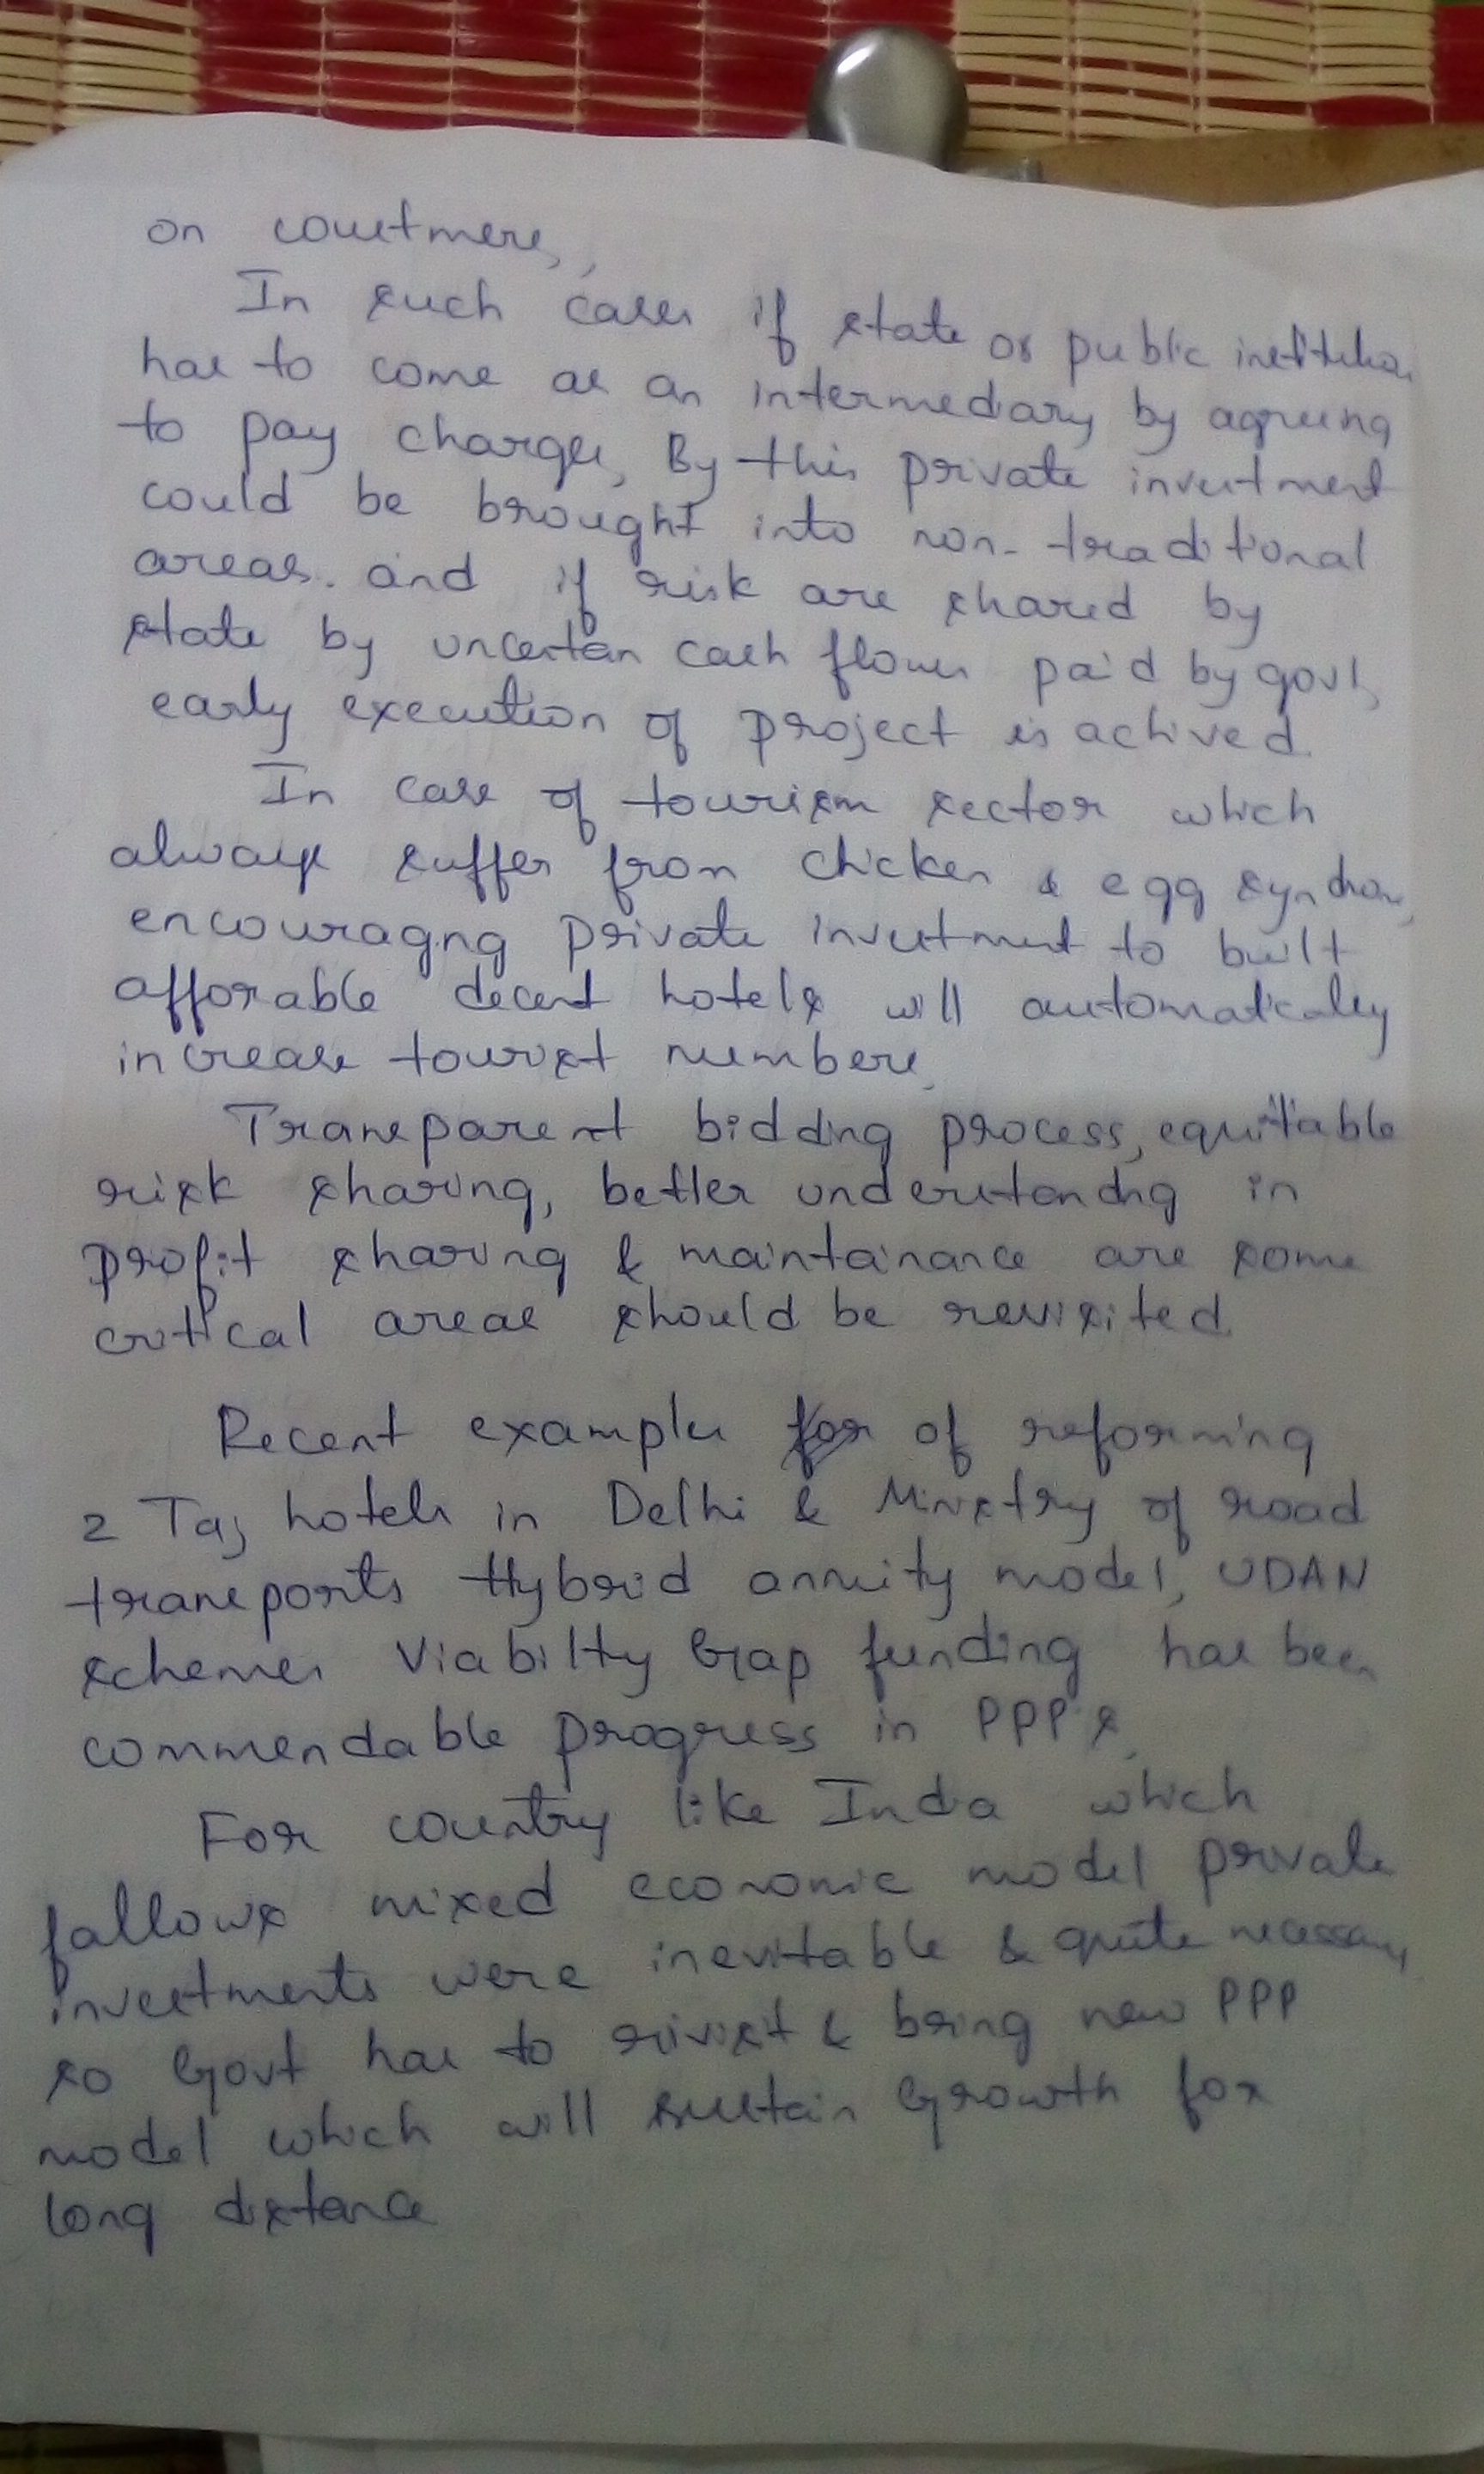 on
In such cases if state or public institution
has to come as an intermedary by agreeing
to pay charges, By this private investment
could be brought into non-traditional
areas. and if risk are shared by
state by uncertan cash flows paid by govt,
early execution of project is achived.
In case of tourism sector which
always suffer from chicken & egg syndrome,
encouragng private investment to built
afforable decent hotels will automatically
increase tourist numbers.
Transparent bidding process, equitable
risk sharing, better understanding in
profit sharing & maintainance are some
critical areas should be revisited.
Recent examples of reforming
2 Taj hotels in Delhi & Ministry of road
transports Hybrid annuity model, UDAN
schemes Viabilty Gap funding has been
commendable progress in PPP's.
For country like India which
fallows mixed economic model private
investments were inevitable & quite necessary
so Govt has to rivisit & bring new PPP
model which will sustain Growth for
long distance